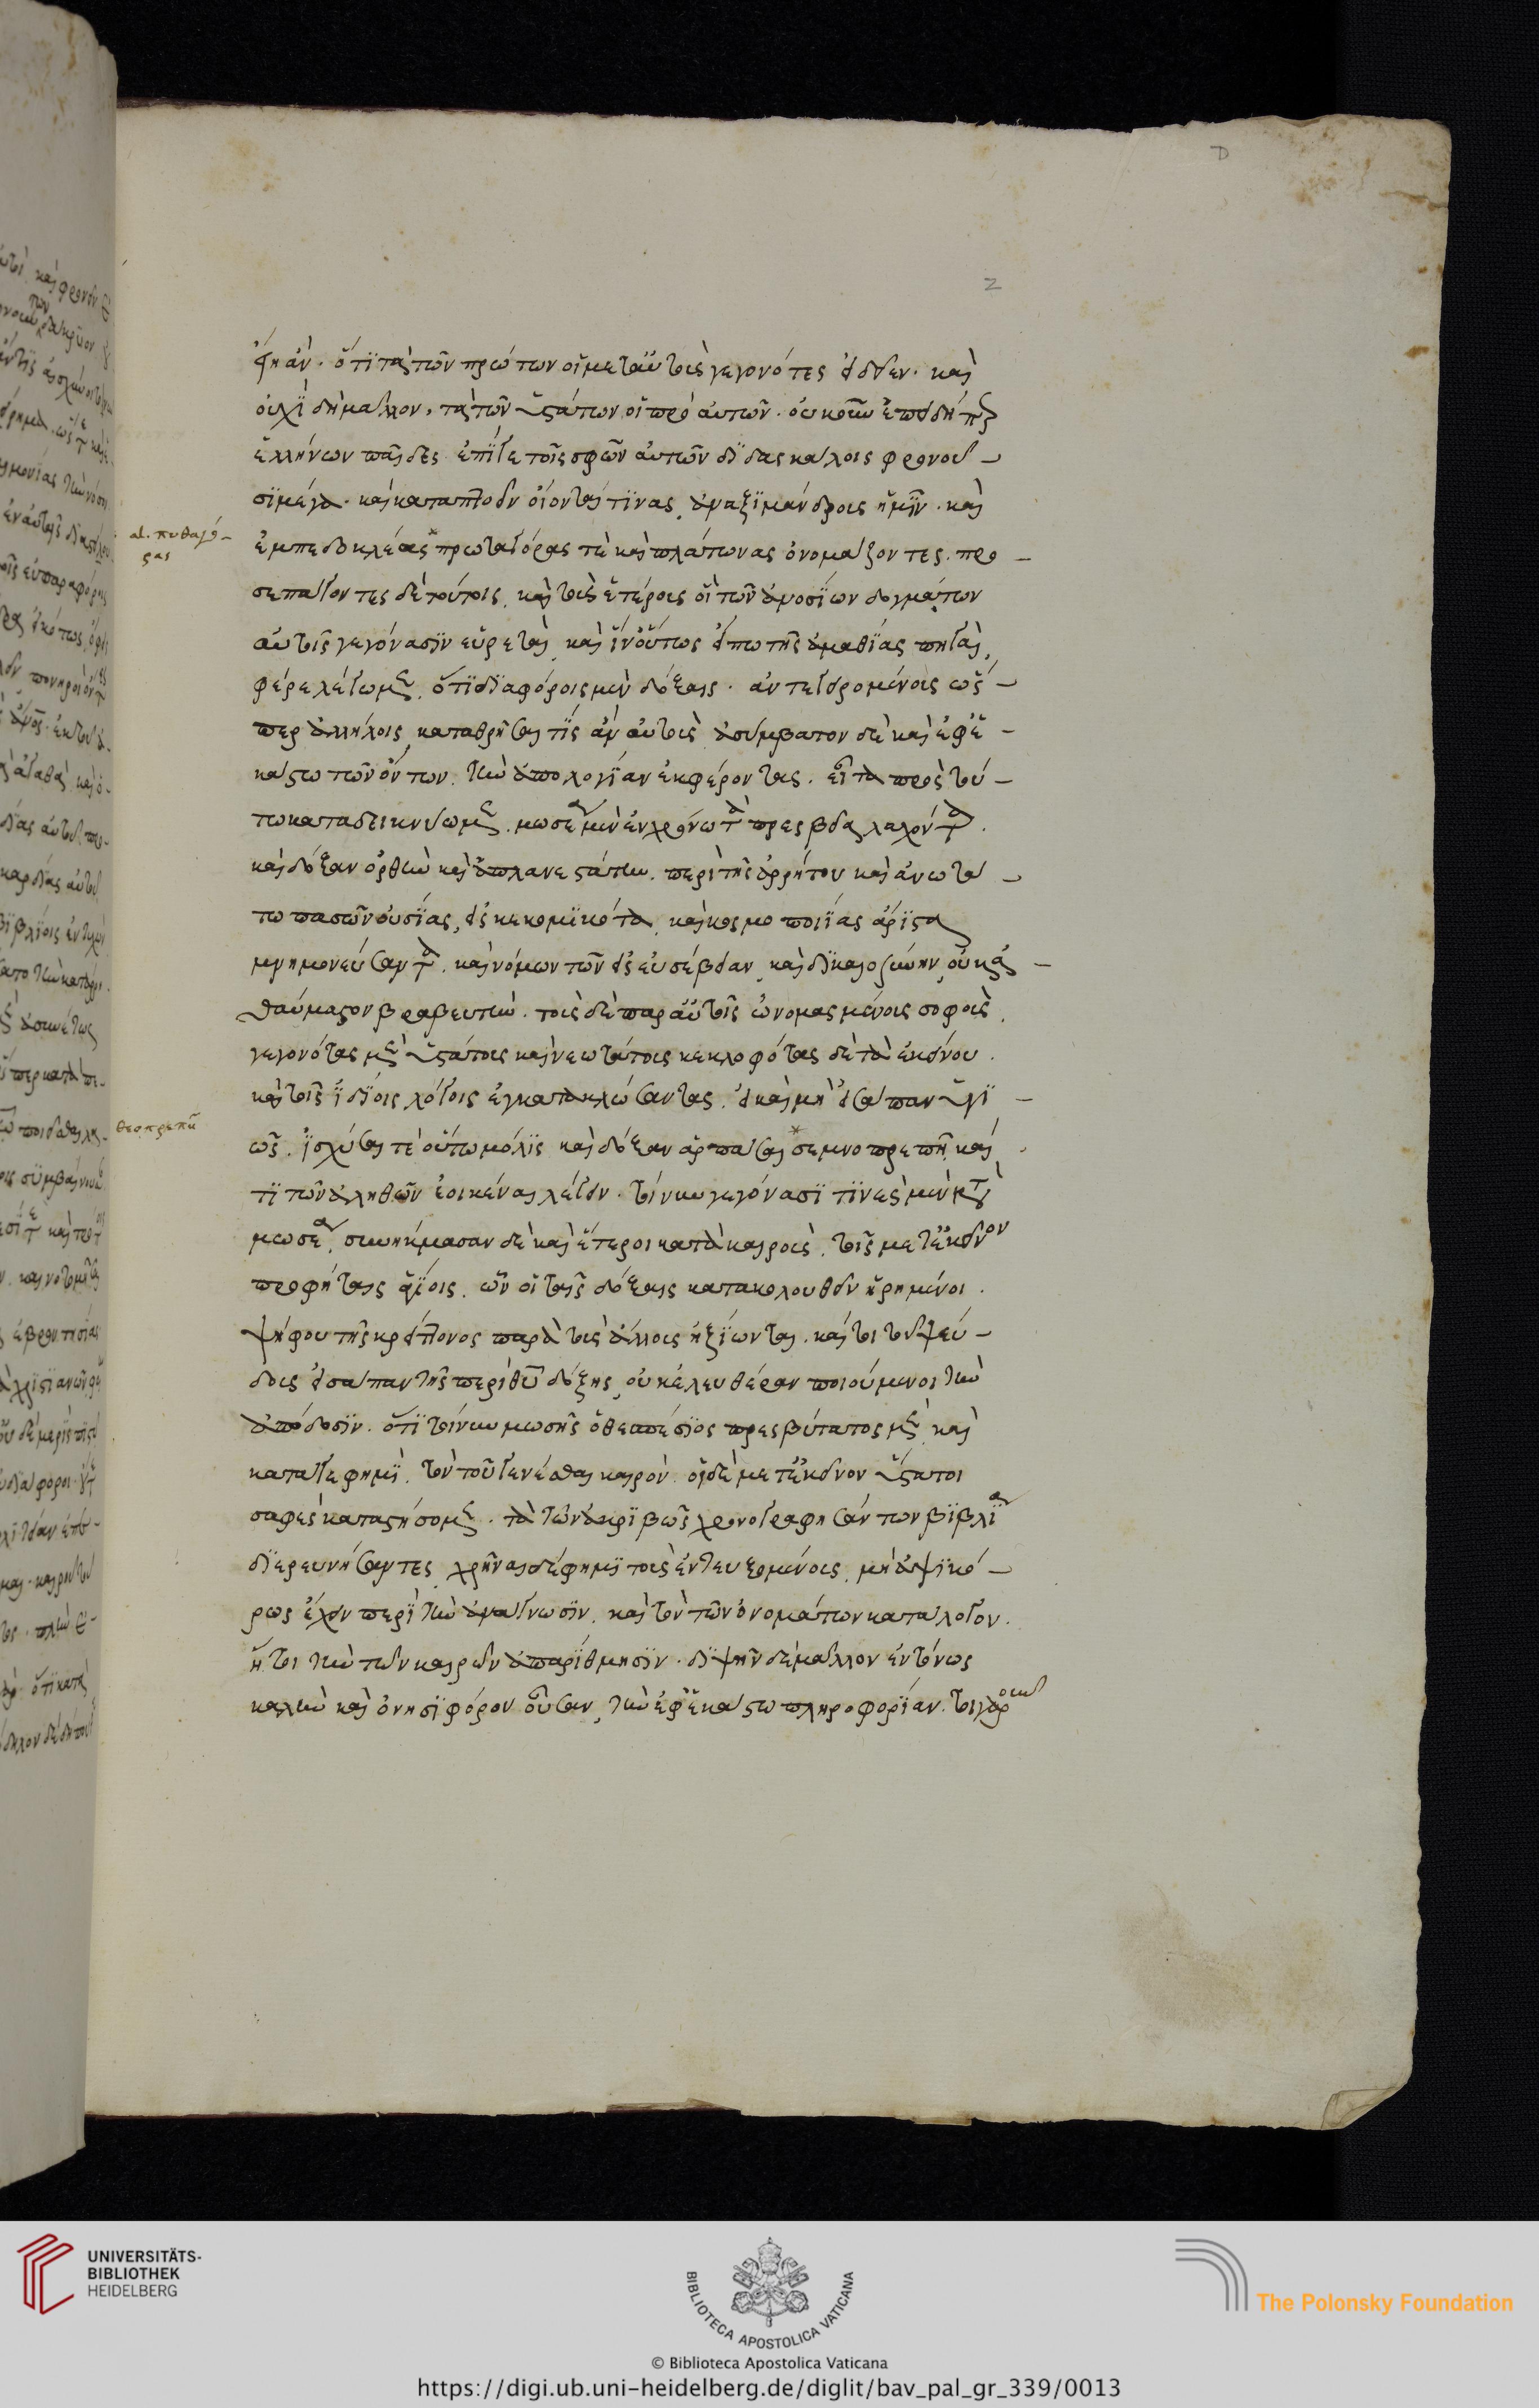 φίη ἄν. ὅτι τὰ τῶν πρώτων οἱ μετ' αὐτοὺς γεγονότες εἰδεῖεν. καὶ
οὐχὶ δὴ μᾶλλον, τὰ τῶν ὑστάτων οἱ πρὸ αὐτῶν. οὐκοῦν ἐπειδήπερ
ἑλλήνων παῖδες ἐπί γε τοῖς σφῶν αὐτῶν διδασκάλοις φρονοῦ-
σι μέγα. καὶ καταπτοεῖν οἴονταί τινας, ἀναξιμάνδρους ἡμῖν. καὶ
al. πυθαγό-
ρας
ἐμπεδοκλέας* πρωταγόρας τὲ καὶ πλάτωνας ὀνομάζοντες. προ-
σεπάγοντες δὲ τούτοις, καὶ τοὺς ἑτέρους οἳ τῶν ἀνοσίων δογμάτων
αὐτοῖς γεγόνασιν εὑρεταὶ, καὶ ἵν' οὕτως εἴπω τῆς ἀμαθίας πηγαὶ,
φέρε λέγωμεν, ὅτι διαφόροις μὲν δόξαις. ἀντεγειρομένους ὥσ-
περ ἀλλήλοις, καταθρῆσαι τίς ἂν αὐτοὺς ἀσύμβατον δὲ καὶ ἐφ' ἑ-
κάστω τῶν ὄντων. τὴν ἀπολογίαν ἐκφέροντας. εἶτα πρὸς τού-
τω καταδεικνύωμεν. μωσέα μὲν ἐν χρόνω τὰ πρεσβεῖα λαχόντα.
καὶ δόξαν ὀρθὴν καὶ ἀπλανεστάτην. περὶ τῆς ἀρρήτου καὶ ἀνωτά-
τω πασῶν οὐσίας, εἰσκεκομικότα, καὶ κοσμοποιίας ἄριστα
μνημονεύσαντα. καὶ νόμων τῶν εἰς εὐσέβειαν, καὶ δικαιοσύνην, οὐκ ἀ-
θαύμαστον βραβευτὴν. τοὺς δὲ παρ' αὐτοῖς ὠνομασμένους σοφοὺς,
γεγονότας μὲν ὑστάτους καὶ νεωτάτους κεκλοφότας δὲ τὰ ἐκείνου.
καὶ τοῖς ἰδίοις λόγοις ἐγκατακλώσαντας. εἰ καὶ μὴ εἰσάπαν ὑγι-
θεοπρεπῆ
ῶς. ἰσχῦσαι τὲ οὕτω μόλις καὶ δόξαν ἁρπάσαι *σεμνοπρεπῆ. καί
τι τῶν ἀληθῶν ἐοικέναι λέγειν. τοίνυν γεγόνασι τινὲς μὲν κατὰ
μωσέα, συνήκμασαν δὲ καὶ ἕτεροι κατὰ καιροὺς, τοῖς μετ' ἐκεῖνον
προφήταις ἁγίοις. ὧν οἱ ταῖς δόξαις κατακολουθεῖν ἡρημένοι.
ψήφου τῆς κρείττονος παρὰ τοὺς ἄλλους ἠξίωνται. καί τοι τοῦ ψεύ-
δους εἰσάπαν τῆς περὶ θεοῦ δόξης, οὐκ ἐλευθέραν ποιούμενοι τὴν
ἀπόδοσιν. ὅτι τοίνυν μωσῆς ὁ θεσπέσιος πρεσβύτατος μὲν, καὶ
κατά γε φημὶ, τὸν τοῦ γενέσθαι καιρὸν. οἱ δὲ μετ' ἐκεῖνον ὕστατοι
σαφὲς καταστήσομεν. τὰ τῶν ἀκριβῶς χρονογραφησάντων βιβλία
διερευνήσαντες, χρῆναι δέ φημι τοὺς ἐντευξομένους, μὴ ἁψικό-
ρως ἔχειν περὶ τὴν ἀνάγνωσιν, καὶ τὸν τῶν ὀνομάτων κατάλογον.
ἤτοι τὴν τῶν καιρῶν ἀπαρίθμησιν. διψῆν δὲ μᾶλλον ἐντόνως
καλὴν καὶ ὀνησιφόρον οὖσαν, τὴν ἐφ' ἑκάστω πληροφορίαν. τοιγαροῦν
UNIVERSITÄTS-
BIBLIOTHEK
HEIDELBERG
BIBLIOTECA APOSTOLICA VATICANA
© Biblioteca Apostolica Vaticana
The Polonsky Foundation
https://digi.ub.uni-heidelberg.de/diglit/bav_pal_gr_339/0013